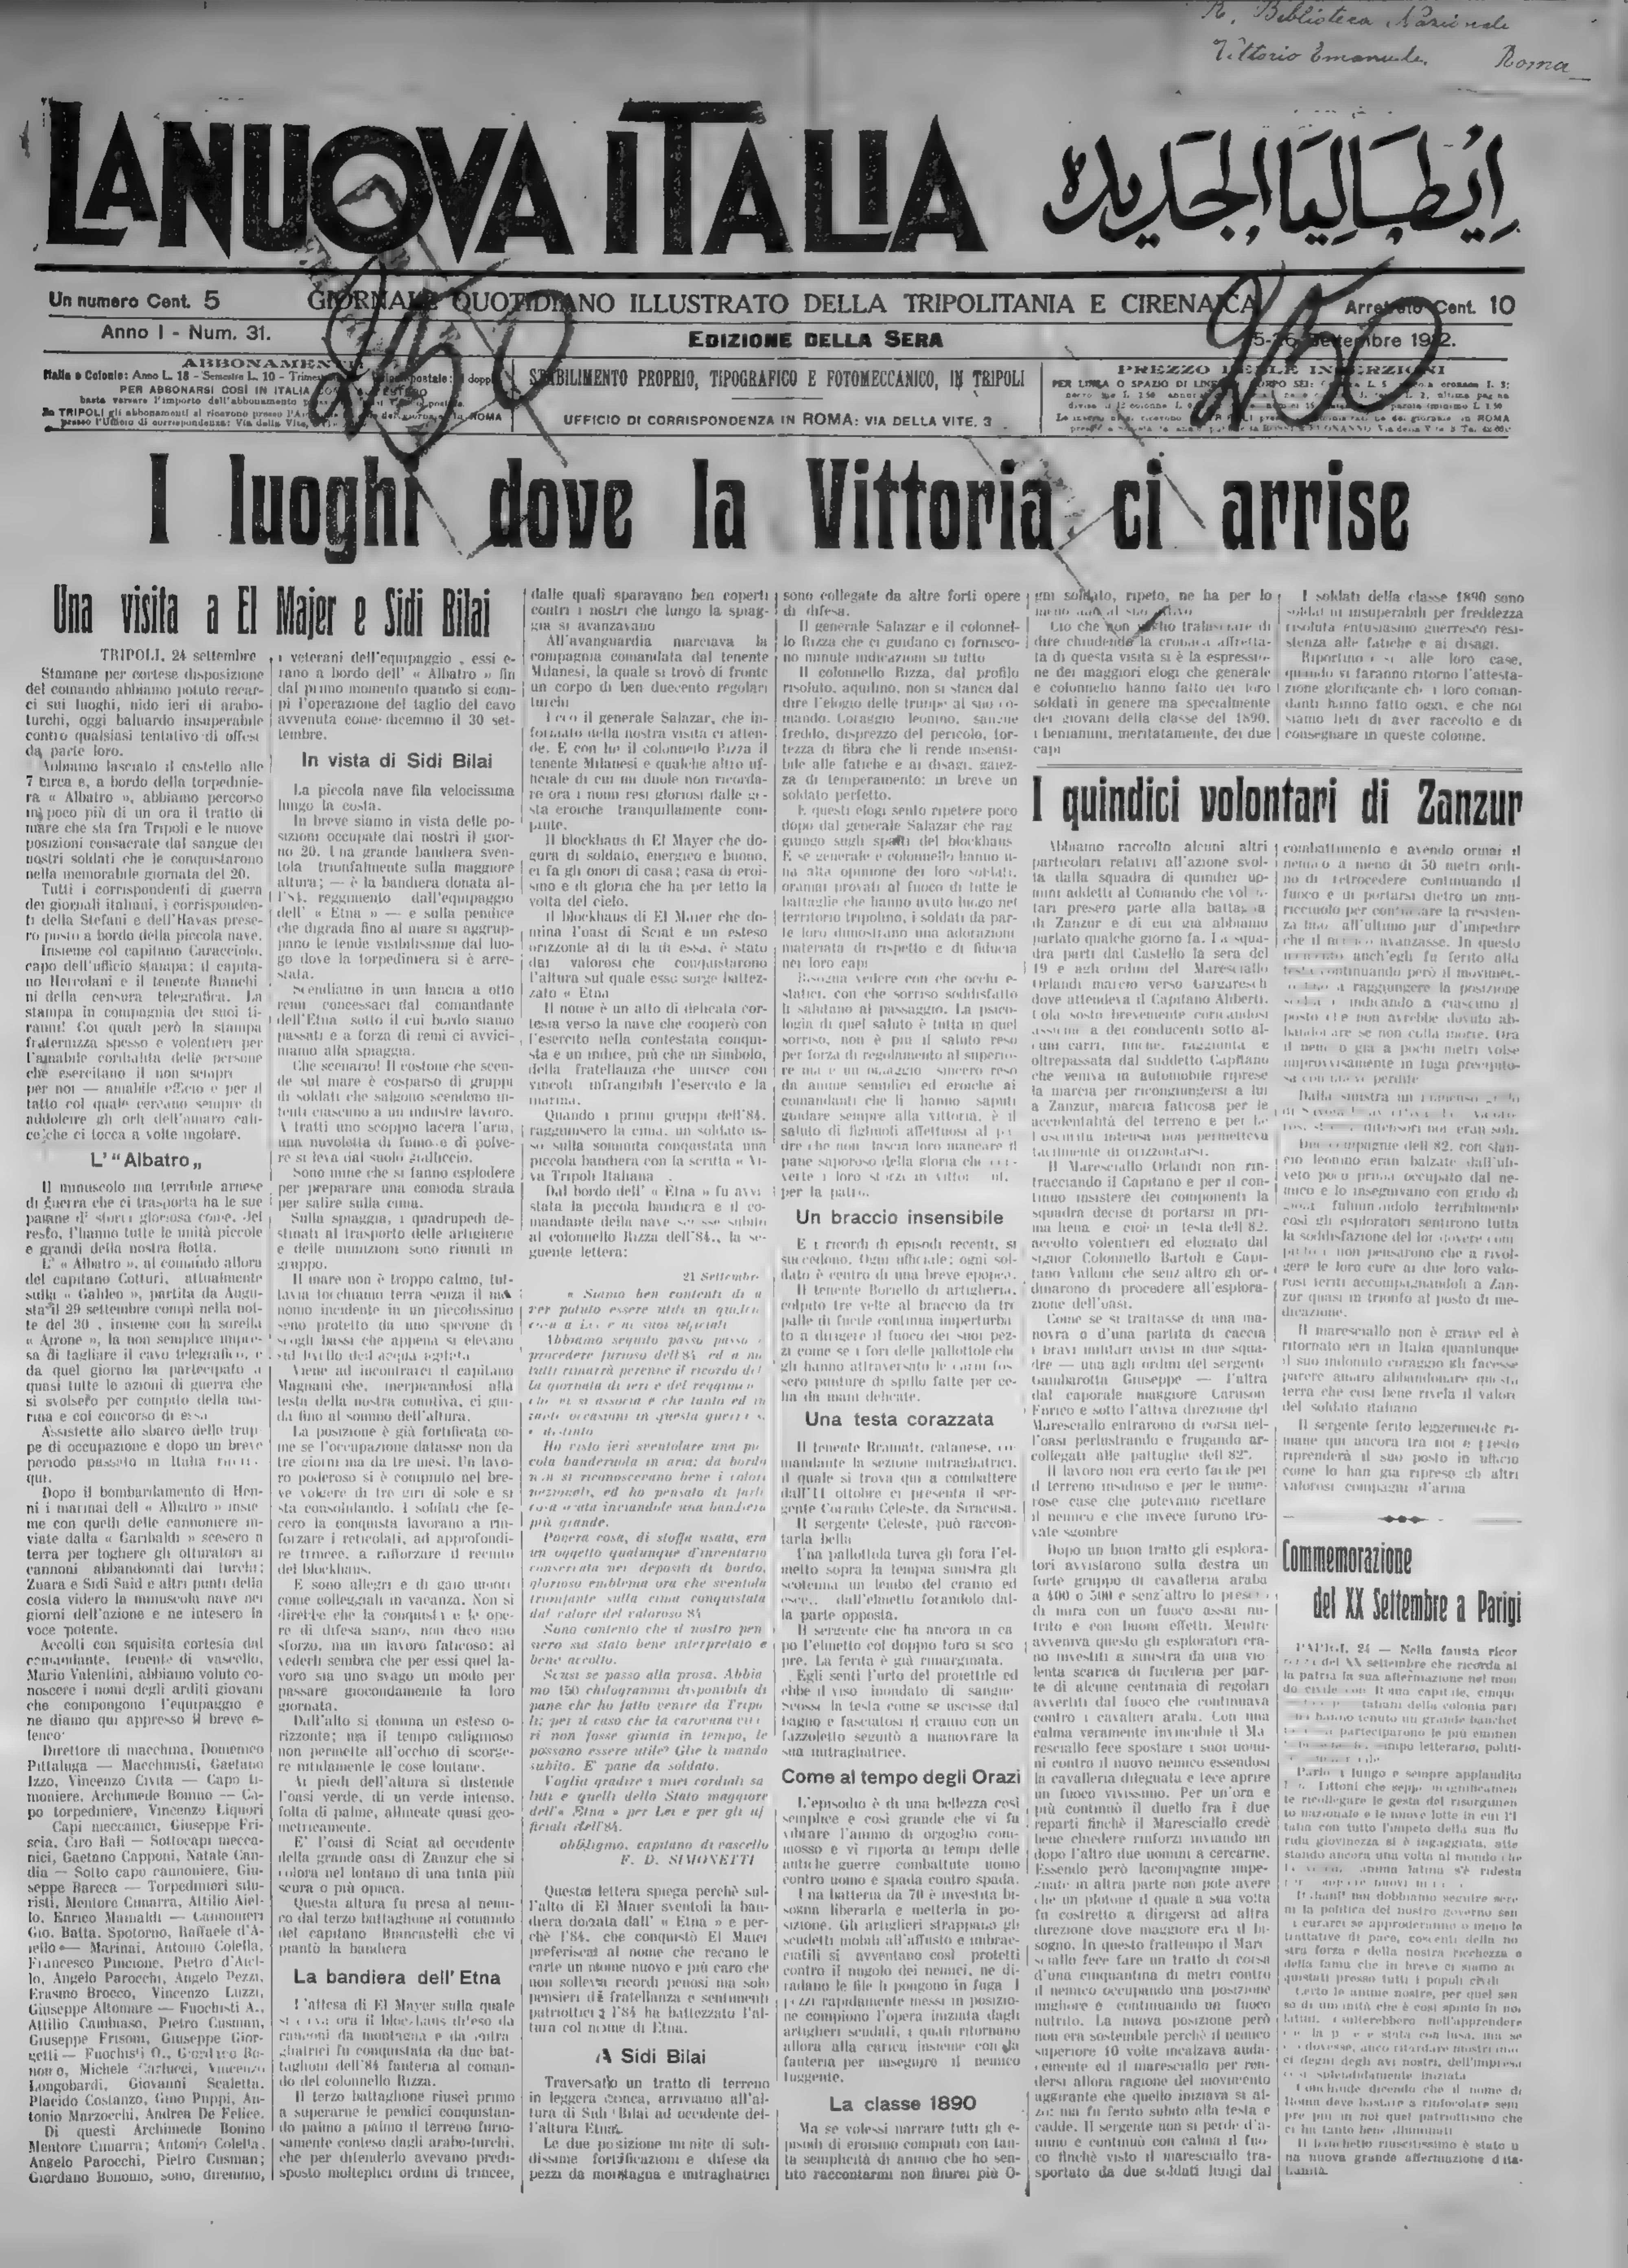 R. Biblioteca Nazionale
Vittorio Emanuele. Roma
LA NUOVA ITALIA
إيطاليا الجديدة
Un numero Cent. 5
GIORNALE QUOTIDIANO ILLUSTRATO DELLA TRIPOLITANIA E CIRENAICA
Arretrato Cent. 10
Anno I - Num. 31.
EDIZIONE DELLA SERA
Settembre 1912.
250
250
ABBONAMENTI
Italia e Colonie: Anno L. 18 - Semestre L. 10
PER ABBONARSI COSÌ IN ITALIA
basta versare l'importo dell'abbonamento
STABILIMENTO PROPRIO, TIPOGRAFICO E FOTOMECCANICO, IN TRIPOLI
UFFICIO DI CORRISPONDENZA IN ROMA: VIA DELLA VITE, 3
PREZZO DELLE INSERZIONI
I luoghi dove la Vittoria ci arrise
Una visita a El Majer e Sidi Bilai
TRIPOLI, 24 settembre
Stamane per cortese disposizione
del comando abbiamo potuto recar-
ci sui luoghi, nido ieri di arabo-
turchi, oggi baluardo insuperabile
contro qualsiasi tentativo di offesa
da parte loro.
Abbiamo lasciato il castello alle
7 circa e, a bordo della torpedinie-
ra « Albatro », abbiamo percorso
in poco più di un ora il tratto di
mare che sta fra Tripoli e le nuove
posizioni consacrate dal sangue dei
nostri soldati che le conquistarono
nella memorabile giornata del 20.
Tutti i corrispondenti di guerra
dei giornali italiani, i corrisponden-
ti della Stefani e dell'Havas prese-
ro posto a bordo della piccola nave.
Insieme col capitano Caracciolo,
capo dell'ufficio stampa; il capita-
no Hercolani e il tenente Bianchi
ni della censura telegrafica. La
stampa in compagnia dei suoi ti-
ranni! Coi quali però la stampa
fraternizza spesso e volentieri per
l'amabile cordialità delle persone
che esercitano il non sempre
per noi — amabile ufficio e per il
tatto col quale cercano sempre di
addolcire gli orli dell'amaro cali-
ce che ci tocca a volte ingoiare.
L' "Albatro„
Il minuscolo ma terribile arnese
di guerra che ci trasporta ha le sue
e grandi della nostra flotta.
L' « Albatro », al comando allora
del capitano Cotturi, attualmente
sulla « Galileo », partita da Augu-
sta il 29 settembre compì nella not-
te del 30, insieme con la sorella
« Airone », la non semplice impre-
sa di tagliare il cavo telegrafico, e
da quel giorno ha partecipato a
quasi tutte le azioni di guerra che
si svolsero per compito della ma-
rina e col concorso di essa
Assistette allo sbarco delle trup
pe di occupazione e dopo un breve
periodo passato in Italia
qui.
Dopo il bombardamento di Hen-
ni i marinai dell « Albatro » insie
me con quelli delle cannoniere in-
viate dalla « Garibaldi » scesero a
terra per togliere gli otturatori ai
cannoni abbandonati dai turchi;
Zuara e Sidi Said e altri punti della
costa videro la minuscola nave nei
giorni dell'azione e ne intesero la
voce potente.
Accolti con squisita cortesia dal
comandante, tenente di vascello,
Mario Valentini, abbiamo voluto co-
noscere i nomi degli arditi giovani
che compongono l'equipaggio e
ne diamo qui appresso il breve e-
lenco
Direttore di macchina, Domenico
Pittaluga — Macchinisti, Gaetano
Izzo, Vincenzo Civita — Capo ti-
moniere, Archimede Bonino — Ca-
po torpediniere, Vincenzo Liquori
Capi meccanici, Giuseppe Fri-
scia, Ciro Bali — Sottocapi mecca-
nici, Gaetano Capponi, Natale Can-
dia — Sotto capo cannoniere, Giu-
seppe Bareca — Torpedinieri silu-
risti, Mentore Cimarra, Attilio Aiel-
lo, Enrico Mainaldi — Cannonieri
Gio. Batta. Spotorno, Raffaele d'A-
iello — Marinai, Antonio Colella,
Francesco Pincione, Pietro d'Aiel-
lo, Angelo Parocchi, Angelo Pezzi,
Erasmo Brocco, Vincenzo Luzzi,
Giuseppe Altomare — Fuochisti A.,
Attilio Cambiaso, Pietro Cusman,
Giuseppe Frisoni, Giuseppe Gior-
getti — Fuochisti O., Giordano Bo-
nomo, Michele Carlucci, Vincenzo
Longobardi, Giovanni Scaletta,
Placido Costanzo, Gino Puppi, An-
tonio Marzocchi, Andrea De Felice.
Di questi Archimede Bonino
Mentore Cimarra; Antonio Colella,
Angelo Parocchi, Pietro Cusman;
Giordano Bonomo, sono, diremmo,
i veterani dell'equipaggio, essi e-
rano a bordo dell' « Albatro » fin
dal primo momento quando si com-
pì l'operazione del taglio del cavo
avvenuta come dicemmo il 30 set-
tembre.
In vista di Sidi Bilai
La piccola nave fila velocissima
lungo la costa.
In breve siamo in vista delle po-
sizioni occupate dai nostri il gior-
no 20. Una grande bandiera sven-
tola trionfalmente sulla maggiore
altura; — è la bandiera donata al-
l'84. reggimento dall'equipaggio
dell' « Etna » — e sulla pendice
che digrada fino al mare si aggrup-
pano le tende visibilissime dal luo-
go dove la torpediniera si è arre-
stata.
Scendiamo in una lancia a otto
remi concessaci dal comandante
dell'Etna sotto il cui bordo siamo
passati e a forza di remi ci avvici-
niamo alla spiaggia.
Che scenario! Il costone che scen-
de sul mare è cosparso di gruppi
di soldati che salgono scendono in-
tenti ciascuno a un industre lavoro.
A tratti uno scoppio lacera l'aria,
una nuvoletta di fumo e di polve-
re si leva dal suolo gialliccio.
Sono mine che si fanno esplodere
per preparare una comoda strada
per salire sulla cima.
Sulla spiaggia, i quadrupedi de-
stinati al trasporto delle artiglierie
e delle munizioni sono riuniti in
gruppo.
Il mare non è troppo calmo, tut-
tavia tocchiamo terra senza il mi-
nomo incidente in un piccolissimo
seno protetto da uno sperone di
scogli bassi che appena si elevano
sul livello dell'acqua agitata
Viene ad incontrarci il capitano
Magnani che, inerpicandosi alla
testa della nostra comitiva, ci gui-
da fino al sommo dell'altura.
La posizione è già fortificata co-
me se l'occupazione datasse non da
tre giorni ma da tre mesi. Un lavo-
ro poderoso si è compiuto nel bre-
ve volgere di tre giri di sole e si
sta consolidando. I soldati che fe-
cero la conquista lavorano a rin-
forzare i reticolati, ad approfondi-
re trincee, a rafforzare il recinto
del blockhaus.
E sono allegri e di gaio umore
come collegiali in vacanza. Non si
direbbe che la conquista e le ope-
re di difesa siano, non dico uno
sforzo, ma un lavoro faticoso; al
vederli sembra che per essi quel la-
voro sia uno svago un modo per
passare giocondamente la loro
giornata.
Dall'alto si domina un esteso o-
rizzonte; ma il tempo caliginoso
non permette all'occhio di scorge-
re nitidamente le cose lontane.
Ai piedi dell'altura si distende
l'oasi verde, di un verde intenso,
folta di palme, allineate quasi geo-
metricamente.
E' l'oasi di Sciat ad occidente
della grande oasi di Zanzur che si
colora nel lontano di una tinta più
scura o più opaca.
Questa altura fu presa al nemi-
co dal terzo battaglione al comando
del capitano Brancastelli che vi
piantò la bandiera
La bandiera dell' Etna
L'altesa di El Mayer sulla quale
ghiatrici fu conquistata da due bat-
taglioni dell'84 fanteria al coman-
do del colonnello Rizza.
Il terzo battaglione riuscì primo
a superarne le pendici conquistan-
do palmo a palmo il terreno furio-
samente conteso dagli arabo-turchi,
che per difenderlo avevano predi-
sposto molteplici ordini di trincee,
dalle quali sparavano ben coperti
contri i nostri che lungo la spiag-
gia si avanzavano
All'avanguardia marciava la
compagnia comandata dal tenente
Milanesi, la quale si trovò di fronte
un corpo di ben duecento regolari
turchi
Ecco il generale Salazar, che in-
formato della nostra visita ci atten-
de. E con lui il colonnello Rizza il
tenente Milanesi e qualche altro uf-
ficiale di cui mi duole non ricorda-
re ora i nomi resi gloriosi dalle ge-
sta eroiche tranquillamente com-
piute.
Il blockhaus di El Mayer che do-
gora di soldato, energico e buono,
ci fa gli onori di casa; casa di eroi-
smo e di gloria che ha per tetto la
volta del cielo.
Il blockhaus di El Maier che do-
mina l'oasi di Sciat e un esteso
orizzonte al di là di essa, è stato
dai valorosi che conquistarono
l'altura sul quale esso sorge battez-
zato « Etna
Il nome è un atto di delicata cor-
tesia verso la nave che cooperò con
l'esercito nella contestata conqui-
sta e un indice, più che un simbolo,
della fratellanza che unisce con
vincoli infrangibili l'esercito e la
marina.
Quando i primi gruppi dell'84.
raggiunsero la cima, un soldato is-
sò sulla sommità conquistata una
piccola bandiera con la scritta « Vi-
va Tripoli Italiana
Dal bordo dell' « Etna » fu avvi
stata la piccola bandiera e il co-
mandante della nave scrisse subito
al colonnello Rizza dell'84., la se-
guente lettera:
21 Settembre
« Siamo ben contenti di a
ver potuto essere utili in qualche
cosa a Lei e ai suoi ufficiali
Abbiamo seguito passo passo
procedere furioso dell'84 ed a noi
tutti rimarrà perenne il ricordo del
la giornata di ieri e del reggimen
Ho visto ieri sventolare una pic
cola banderuola in aria; da bordo
non si riconoscevano bene i colori
nazionali, ed ho pensato di farle
cosa grata inviandole una bandiera
più grande.
Povera cosa, di stoffa usata, era
un oggetto qualunque d'inventario
conservata nei depositi di bordo,
glorioso emblema ora che sventola
trionfante sulla cima conquistata
dal valore del valoroso 84
Sono contento che il nostro pen
siero sia stato bene interpretato e
bene accolto.
Scusi se passo alla prosa. Abbia
mo 150 chilogrammi disponibili di
pane che ho fatto venire da Tripo
li; per il caso che la carovana
ri non fosse giunta in tempo, le
possono essere utile? Glie li mando
subito. E' pane da soldato.
Voglia gradire i miei cordiali sa
luti e quelli dello Stato maggiore
dell'« Etna » per Lei e per gli uf
ficiali dell'84.
obbligmo, capitano di vascello
F. D. SIMONETTI
Questa lettera spiega perchè sul-
l'alto di El Maier sventoli la ban-
diera donata dall' « Etna » e per-
chè l'84. che conquistò El Maier
preferisca al nome che recano le
carte un nome nuovo e più caro che
non solleva ricordi penosi ma solo
pensieri di fratellanza e sentimenti
patriottici; l'84 ha battezzato l'al-
tura col nome di Etna.
A Sidi Bilai
Traversato un tratto di terreno
in leggera conca, arriviamo all'al-
tura di Sidi Bilai ad occidente del-
l'altura Etna.
Le due posizione munite di soli-
dissime fortificazioni e difese da
pezzi da montagna e mitragliatrici
sono collegate da altre forti opere
di difesa.
Il generale Salazar e il colonnel-
lo Rizza che ci guidano ci fornisco-
no minute indicazioni su tutto
Il colonnello Rizza, dal profilo
risoluto, aquilino, non si stanca dal
dire l'elogio delle truppe al suo co-
mando. Coraggio leonino, sangue
freddo, disprezzo del pericolo, for-
tezza di fibra che li rende insensi-
bile alle fatiche e ai disagi, gaiez-
za di temperamento; in breve un
soldato perfetto.
E questi elogi sento ripetere poco
dopo dal generale Salazar che rag
giungo sugli spalti del blockhaus
E se generale e colonnello hanno u-
na alta opinione dei loro soldati,
oramai provati al fuoco di tutte le
battaglie che hanno avuto luogo nel
territorio tripolino, i soldati da par-
te loro dimostrano una adorazione
materiata di rispetto e di fiducia
nei loro capi
Bisogna vedere con che occhi e-
statici, con che sorriso soddisfatto
li salutano al passaggio. La psico-
logia di quel saluto è tutta in quel
sorriso, non è più il saluto reso
per forza di regolamento al superio-
re ma è un omaggio sincero reso
da anime semplici ed eroiche ai
comandanti che li hanno saputi
guidare sempre alla vittoria, è il
saluto di figliuoli affettuosi al pa-
dre che non lascia loro mancare il
pane saporoso della gloria che
per la patria.
Un braccio insensibile
E i ricordi di episodi recenti, si
succedono. Ogni ufficiale; ogni sol-
dato è centro di una breve epopea.
Il tenente Boriello di artiglieria,
colpito tre volte al braccio da tre
palle di fucile continua imperturba
to a dirigere il fuoco dei suoi pez-
zi come se i fori delle pallottole che
gli hanno attraversato le carni fos
sero punture di spillo fatte per ce-
lia da mani delicate.
Una testa corazzata
Il tenente Bramati, catanese, co-
mandante la sezione mitragliatrici,
il quale si trova qui a combattere
dall'11 ottobre ci presenta il ser-
gente Corrado Celeste, da Siracusa.
Il sergente Celeste, può raccon-
tarla bella
Una pallottola turca gli fora l'el-
metto sopra la tempia sinistra gli
scotenna un lembo del cranio ed
esce.. dall'elmetto forandolo dal-
la parte opposta.
Il sergente che ha ancora in ca
po l'elmetto col doppio foro si sco
pre. La ferita è già rimarginata.
Egli sentì l'urto del proiettile ed
ebbe il viso inondato di sangue
Scossa la testa come se uscisse dal
bagno e fasciatosi il cranio con un
fazzoletto seguitò a manovrare la
sua mitragliatrice.
Come al tempo degli Orazi
L'episodio è di una bellezza così
semplice e così grande che vi fa
vibrare l'animo di orgoglio com-
mosso e vi riporta ai tempi delle
antiche guerre combattute uomo
contro uomo e spada contro spada.
Una batteria da 70 è investita bi-
sogna liberarla e metterla in po-
sizione. Gli artiglieri strappano gli
scudetti mobili all'affusto e imbrac-
ciatili si avventano così protetti
contro il nugolo dei nemici, ne di-
radano le file li pongono in fuga I
pezzi rapidamente messi in posizio-
ne compiono l'opera iniziata dagli
artiglieri scudati, i quali ritornano
allora alla carica insieme con la
fanteria per inseguire il nemico
fuggente.
La classe 1890
Ma se volessi narrare tutti gli e-
pisodi di eroismo compiuti con tan-
ta semplicità di animo che ho sen-
tito raccontarmi non finirei più O-
gni soldato, ripeto, ne ha per lo
meno uno al suo attivo
Ciò che non voglio tralasciare di
dire chiudendo la cronaca affretta-
ta di questa visita si è la espressio-
ne dei maggiori elogi che generale
e colonnello hanno fatto dei loro
soldati in genere ma specialmente
dei giovani della classe del 1890,
i beniamini, meritatamente, dei due
capi
I soldati della classe 1890 sono
soldati insuperabili per freddezza
risoluta entusiasmo guerresco resi-
stenza alle fatiche e ai disagi.
Riportino essi alle loro case,
quando vi faranno ritorno l'attesta-
zione glorificante che i loro coman-
danti hanno fatto oggi, e che noi
siamo lieti di aver raccolto e di
consegnare in queste colonne.
I quindici volontari di Zanzur
Abbiamo raccolto alcuni altri
particolari relativi all'azione svol-
ta dalla squadra di quindici uo-
mini addetti al Comando che volon-
tari presero parte alla battaglia
di Zanzur e di cui già abbiamo
parlato qualche giorno fa. La squa-
dra partì dal Castello la sera del
19 e agli ordini del Maresciallo
Orlandi marciò verso Gargaresch
dove attendeva il Capitano Aliberti.
Colà sostò brevemente coricandosi
assieme a dei conducenti sotto al-
cuni carri, finchè, raggiunta e
oltrepassata dal suddetto Capitano
che veniva in automobile riprese
la marcia per ricongiungersi a lui
a Zanzur, marcia faticosa per le
accidentalità del terreno e per la
l'oscurità intensa non permetteva
facilmente di orizzontarsi.
Il Maresciallo Orlandi non rin-
tracciando il Capitano e per il con-
tinuo insistere dei componenti la
squadra decise di portarsi in pri-
ma linea e cioè in testa dell'82.
accolto volentieri ed elogiato dal
signor Colonnello Bartoli e Capi-
tano Valloni che senz'altro gli or-
dinarono di procedere all'esplora-
zione dell'oasi.
Come se si trattasse di una ma-
novra o d'una partita di caccia
i bravi militari divisi in due squa-
dre — una agli ordini del sergente
Gambarotta Giuseppe — l'altra
dal caporale maggiore Caruson
Enrico e sotto l'attiva direzione del
Maresciallo entrarono di corsa nel-
l'oasi perlustrando e frugando ar-
collegati alle pattuglie dell'82°.
Il lavoro non era certo facile per
il terreno insidioso e per le nume-
rose case che potevano ricettare
il nemico e che invece furono tro-
vate sgombre
Dopo un buon tratto gli esplora-
tori avvistarono sulla destra un
forte gruppo di cavalleria araba
a 400 o 500 e senz'altro lo presero
di mira con un fuoco assai nu-
trito e con buoni effetti. Mentre
avveniva questo gli esploratori era-
no investiti a sinistra da una vio
lenta scarica di fucileria per par-
te di alcune centinaia di regolari
avvertiti dal fuoco che continuava
contro i cavalieri arabi. Con una
calma veramente invincibile il Ma
resciallo fece spostare i suoi uomi-
ni contro il nuovo nemico essendosi
la cavalleria dileguata e fece aprire
un fuoco vivissimo. Per un'ora e
più continuò il duello fra i due
reparti finchè il Maresciallo credè
bene chiedere rinforzi inviando un
dopo l'altro due uomini a cercarne.
Essendo però la compagnia impe-
gnate in altra parte non potè avere
che un plotone il quale a sua volta
fu costretto a dirigersi ad altra
direzione dove maggiore era il bi-
sogno. In questo frattempo il Mare
sciallo fece fare un tratto di corsa
d'una cinquantina di metri contro
il nemico occupando una posizione
migliore e continuando un fuoco
nutrito. La nuova posizione però
non era sostenibile perchè il nemico
superiore 10 volte incalzava auda-
cemente ed il maresciallo per ren-
dersi allora ragione del movimento
aggirante che quello iniziava si al-
zò; ma fu ferito subito alla testa e
cadde. Il sergente non si perde d'a-
nimo e continuò con calma il fuo
co finchè visto il maresciallo tra-
sportato da due soldati lungi dal
combattimento e avendo ormai il
nemico a meno di 50 metri ordi-
nò di retrocedere continuando il
fuoco e di portarsi dietro un mu-
ricciuolo per continuare la resisten-
za fino all'ultimo pur d'impedire
che il nemico avanzasse. In questo
momento anch'egli fu ferito alla
testa continuando però il movimen-
a raggiungere la posizione
indicando a ciascuno il
posto che non avrebbe dovuto ab-
bandonare se non colla morte. Ora
il nemico già a pochi metri volse
improvvisamente in fuga precipito-
sa con gravi perdite
Due compagnie dell'82. con slan-
cio leonino eran balzate dall'uli-
veto poco prima occupato dal ne-
mico e lo inseguivano con grido di
fulminandolo terribilmente
così gli esploratori sentirono tutta
la soddisfazione del lor dovere com
piuto e non pensarono che a rivol-
gere le loro cure ai due loro valo-
rosi feriti accompagnandoli a Zan-
zur quasi in trionfo al posto di me-
dicazione.
Il maresciallo non è grave ed è
ritornato ieri in Italia quantunque
il suo indomito coraggio gli facesse
parere amaro abbandonare questa
terra che così bene rivela il valore
del soldato italiano
Il sergente ferito leggermente ri-
mane qui ancora tra noi e presto
riprenderà il suo posto in ufficio
come lo han già ripreso gli altri
valorosi compagni d'arma
Commemorazione
del XX Settembre a Parigi
PARIGI, 24 — Nella fausta ricor
renza del XX settembre che ricorda al
la patria la sua affermazione nel mon
do civile con Roma capitale, cinque
italiani della colonia pari
gina hanno tenuto un grande banchet
parteciparono le più eminen
campo letterario, politi-
Parlò a lungo e sempre applaudito
Tittoni che seppe magnificamen
te ricollegare le gesta del risorgimen
to nazionale e le nuove lotte in cui l'I
talia con tutto l'impeto della sua flo
rida giovinezza si è ingaggiata, atte
stando ancora una volta al mondo che
anima latina s'è ridesta
noi dobbiamo seguire sere
ni la politica del nostro governo sen
za curarci se approderanno o meno le
trattative di pace, coscenti della no
stra forza e della nostra ricchezza e
della fama che in breve ci siamo ac
quistati presso tutti i popoli civili
Certo le anime nostre, per quel sen
so di umanità che è così spinto in noi
latini, esulterebbero nell'apprendere
dovesse, anco ritardare mostriamo
ci degni degli avi nostri, dell'impresa
così splendidamente iniziata
Conchiude dicendo che il nome di
Roma deve bastare a rinfocolare sem
pre più in noi quel patriottismo che
ci ha tanto bene illuminati
Il banchetto riuscitissimo è stato u
na nuova grande affermazione d'ita-
lianità.